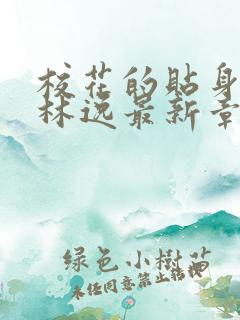 校花的贴身
林逸最新章
绿色小樹苗
未任同意禁止转携